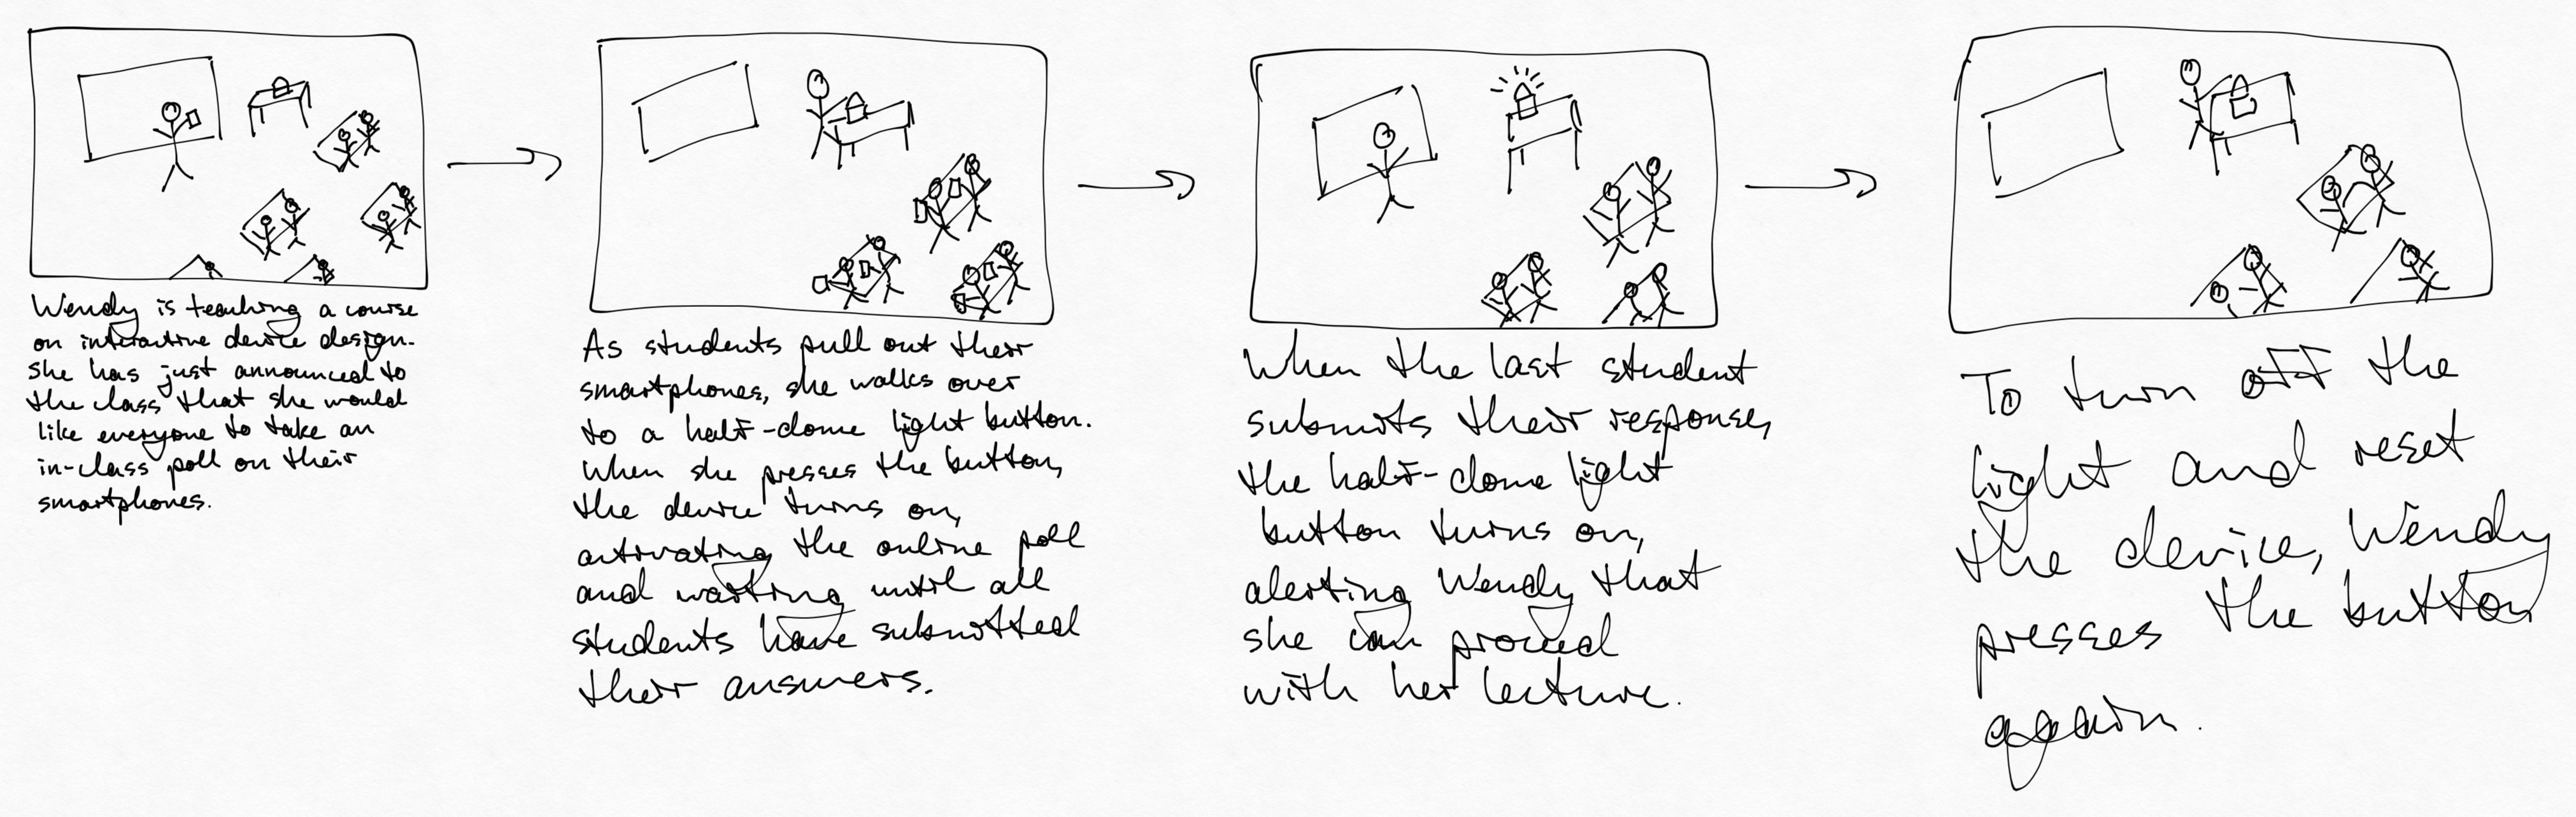 Wendy is teaching a course
on interactive device design.
She has just announced to
the class that she would
like everyone to take an
in-class poll on their
smartphones.
As students pull out their
smartphones, she walks over
to a half-dome light button.
When she presses the button,
the device turns on,
activating the online poll
and waiting until all
students have submitted
their answers.
When the last student
submits their response,
the half-dome light
button turns on,
alerting Wendy that
she can proceed
with her lecture.
To turn off the
light and reset
the device, Wendy
presses the button
again.